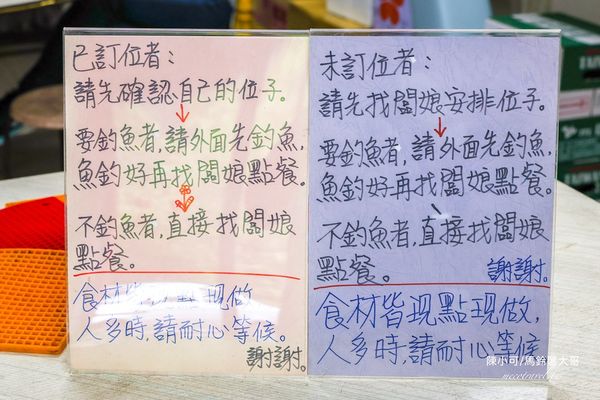 已訂位者：
請先確認自己的位子。
要釣魚者，請外面先釣魚，
魚釣好再找闆娘點餐。
不釣魚者，直接找闆娘
點餐。
食材 現做
人多時，請耐心等候。
謝謝。
未訂位者：
請先找闆娘安排位子。
要釣魚者，請外面先釣魚，
魚釣好再找闆娘點餐。
不釣魚者，直接找闆娘
點餐。 謝謝。
食材皆現點現做，
人多時，請耐心等候
陳小可/馬鈴薯大哥